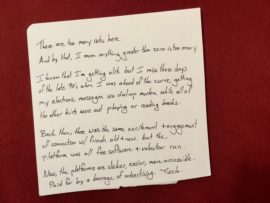 There are too many ads here.
And by that, I mean anything greater than zero is too many.
I know that I'm getting old but I miss those days
of the late 90's when I was ahead of the curve, getting
my electronic messages via dialup modem while all of
the other kids were out playing or reading books.
Back then, there was the same excitement + engagement
of connection w/ friends old + new, but the
platform was all free software + volunteer run.
Now, the platforms are sleeker, easier, more accessible.
Paid for by a barrage of advertising.